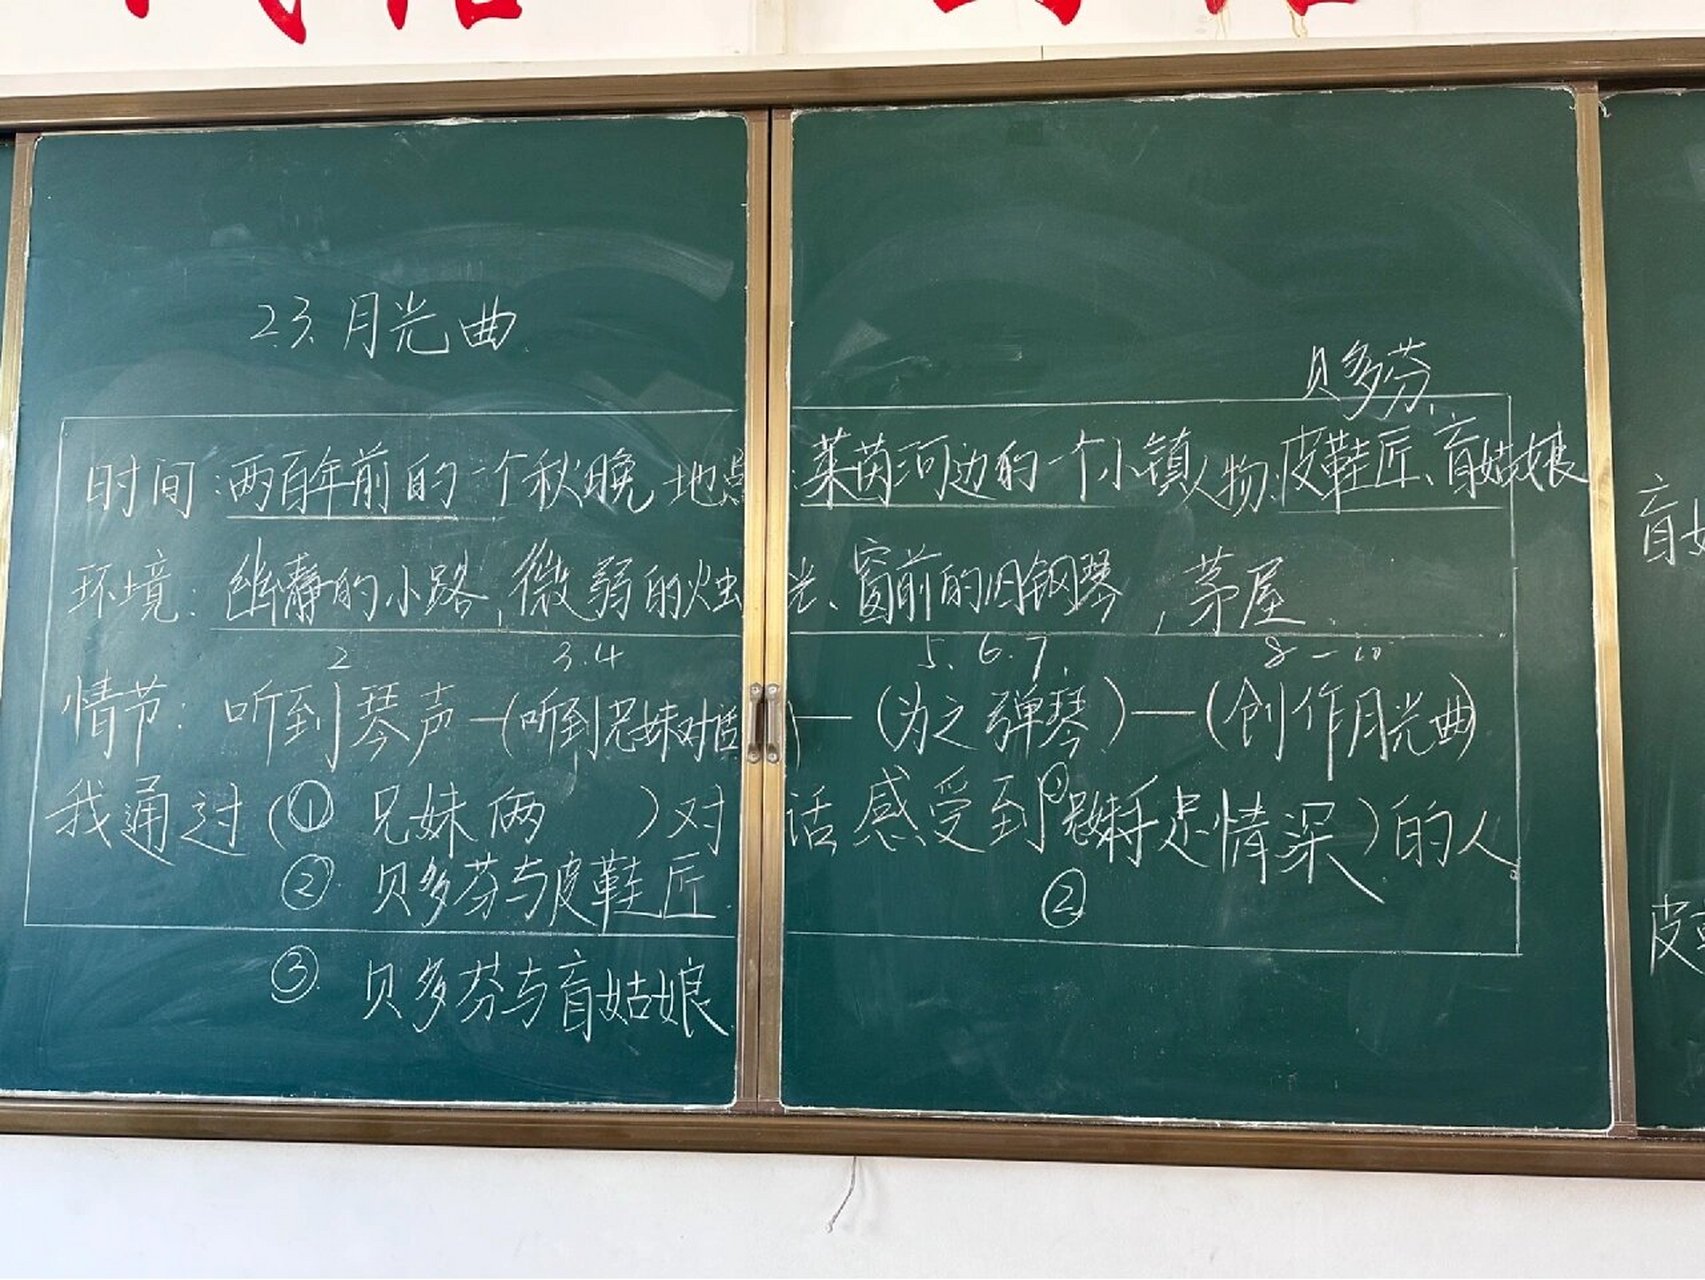 23.月光曲
贝多芬、
时间:两百年前的一个秋晚 地点:莱茵河边的一个小镇 人物:皮鞋匠、盲姑娘
环境:幽静的小路,微弱的烛光、窗前的旧钢琴,茅屋
2 3.4 5.6.7. 8—10
情节:听到琴声—(听到兄妹对话)—(为之弹琴)—(创作月光曲)
我通过(① 兄妹俩 )对话感受到①兄妹手足情深)的人
② 贝多芬与皮鞋匠 ②
③ 贝多芬与盲姑娘
盲
皮